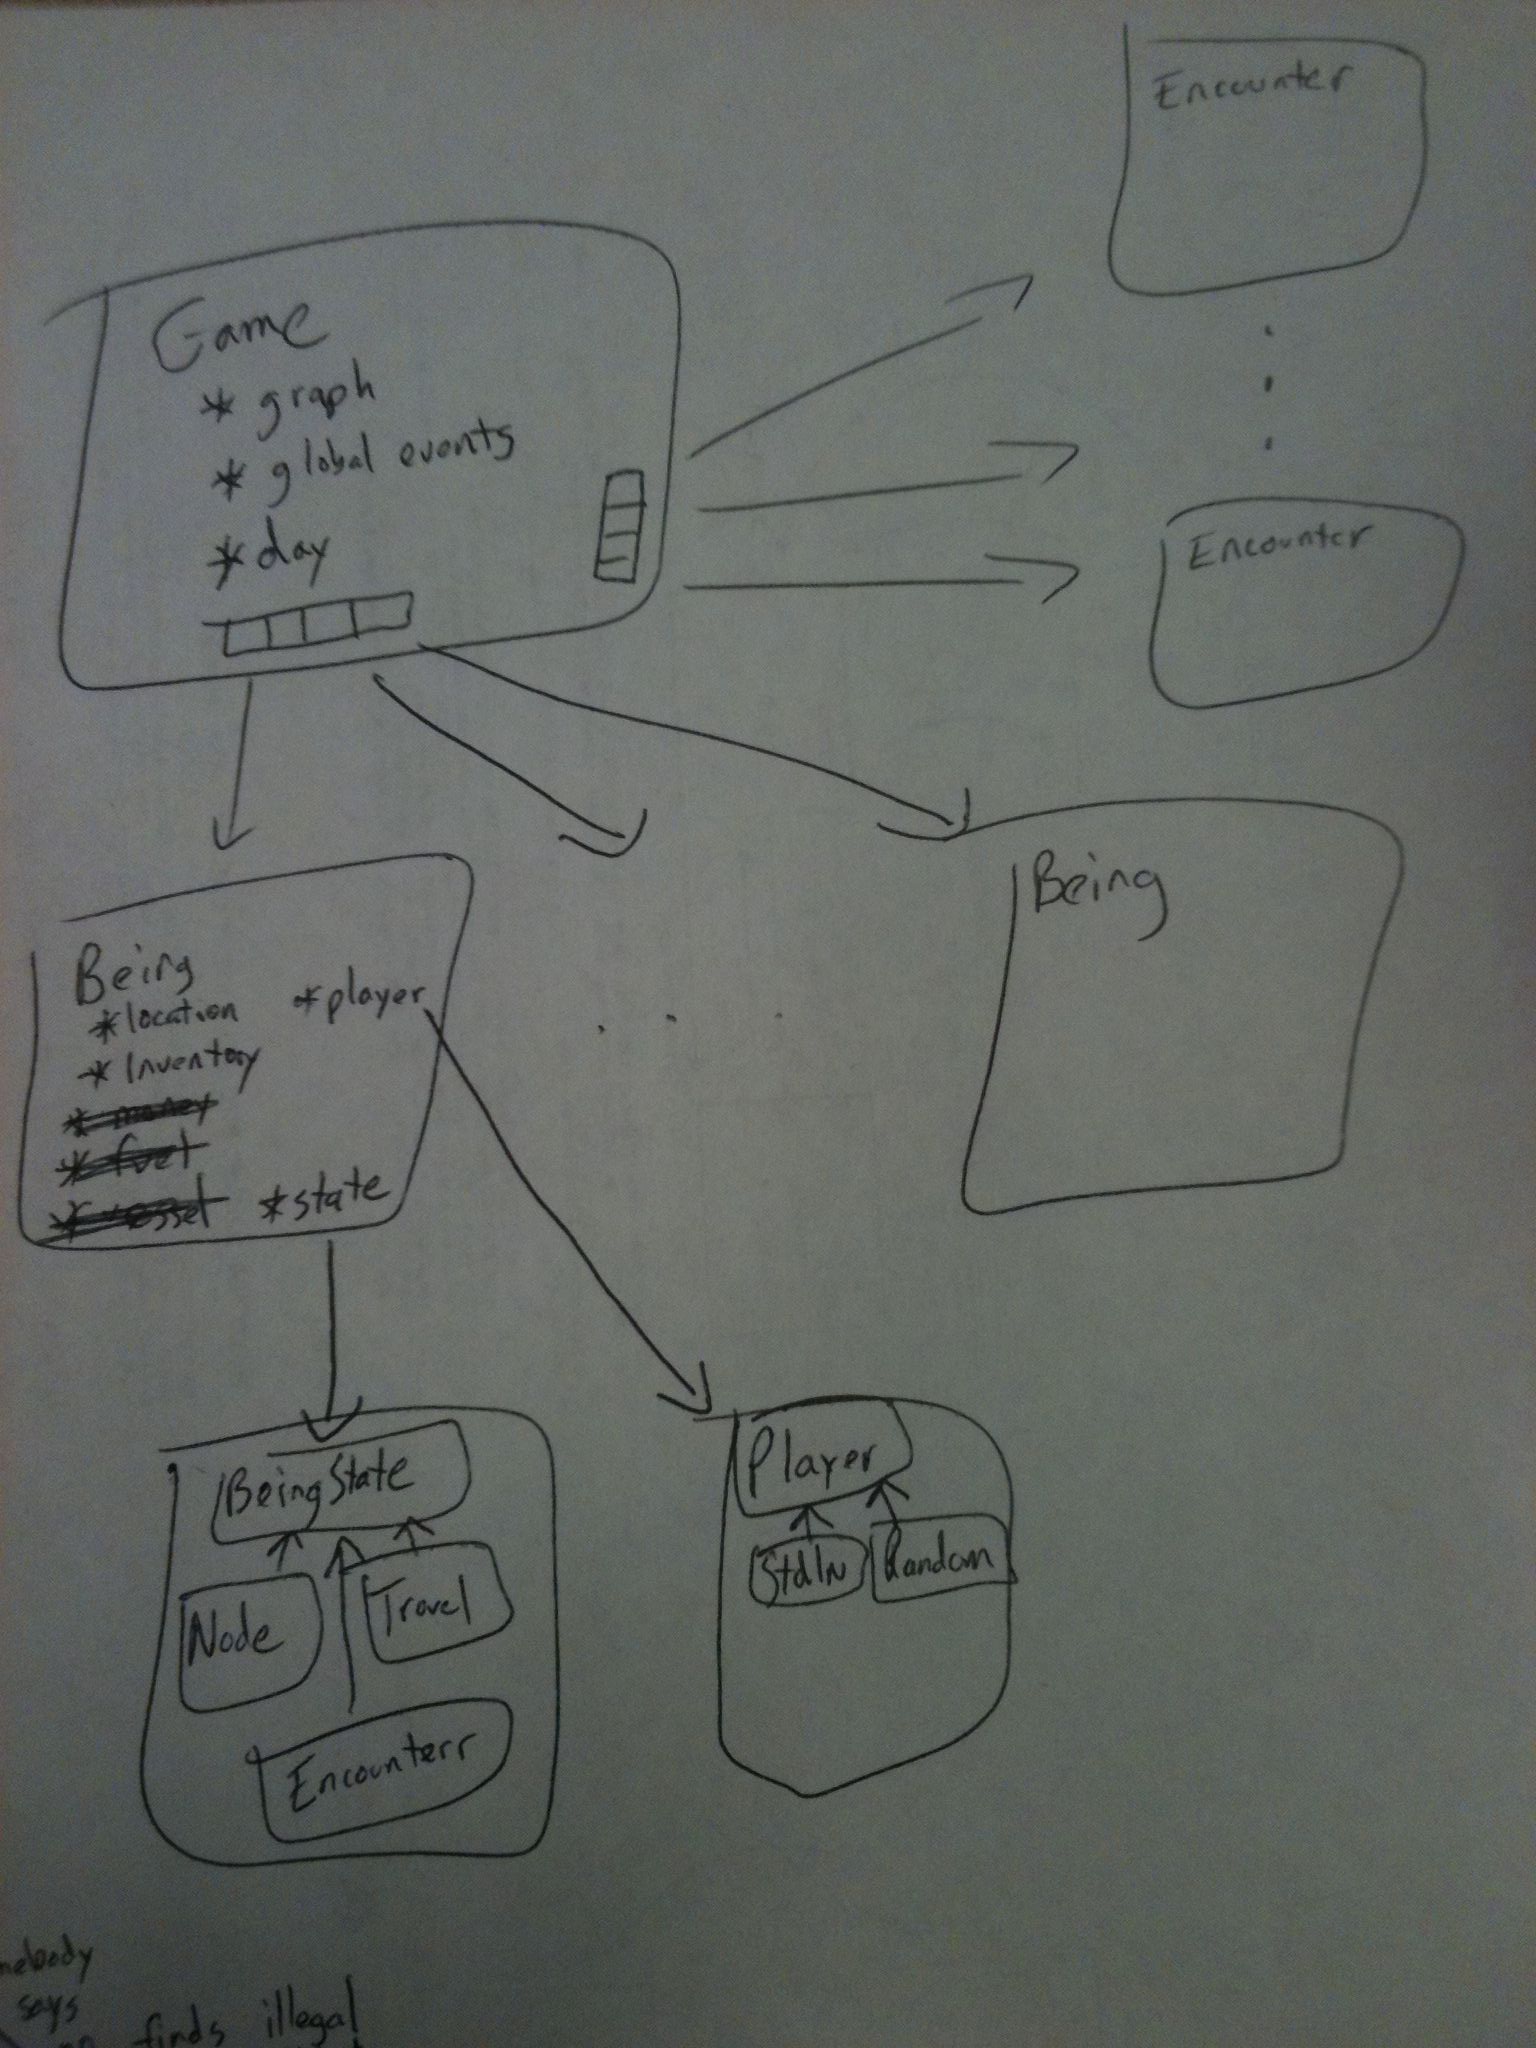 Encounter
Game
* graph
* global events
* day
Encounter
Being
Being
* location
* player
* Inventory
* money
* fuel
* vessel
* state
BeingState
Node
Travel
Encounterr
Player
StdIn
Random
says
finds illegal